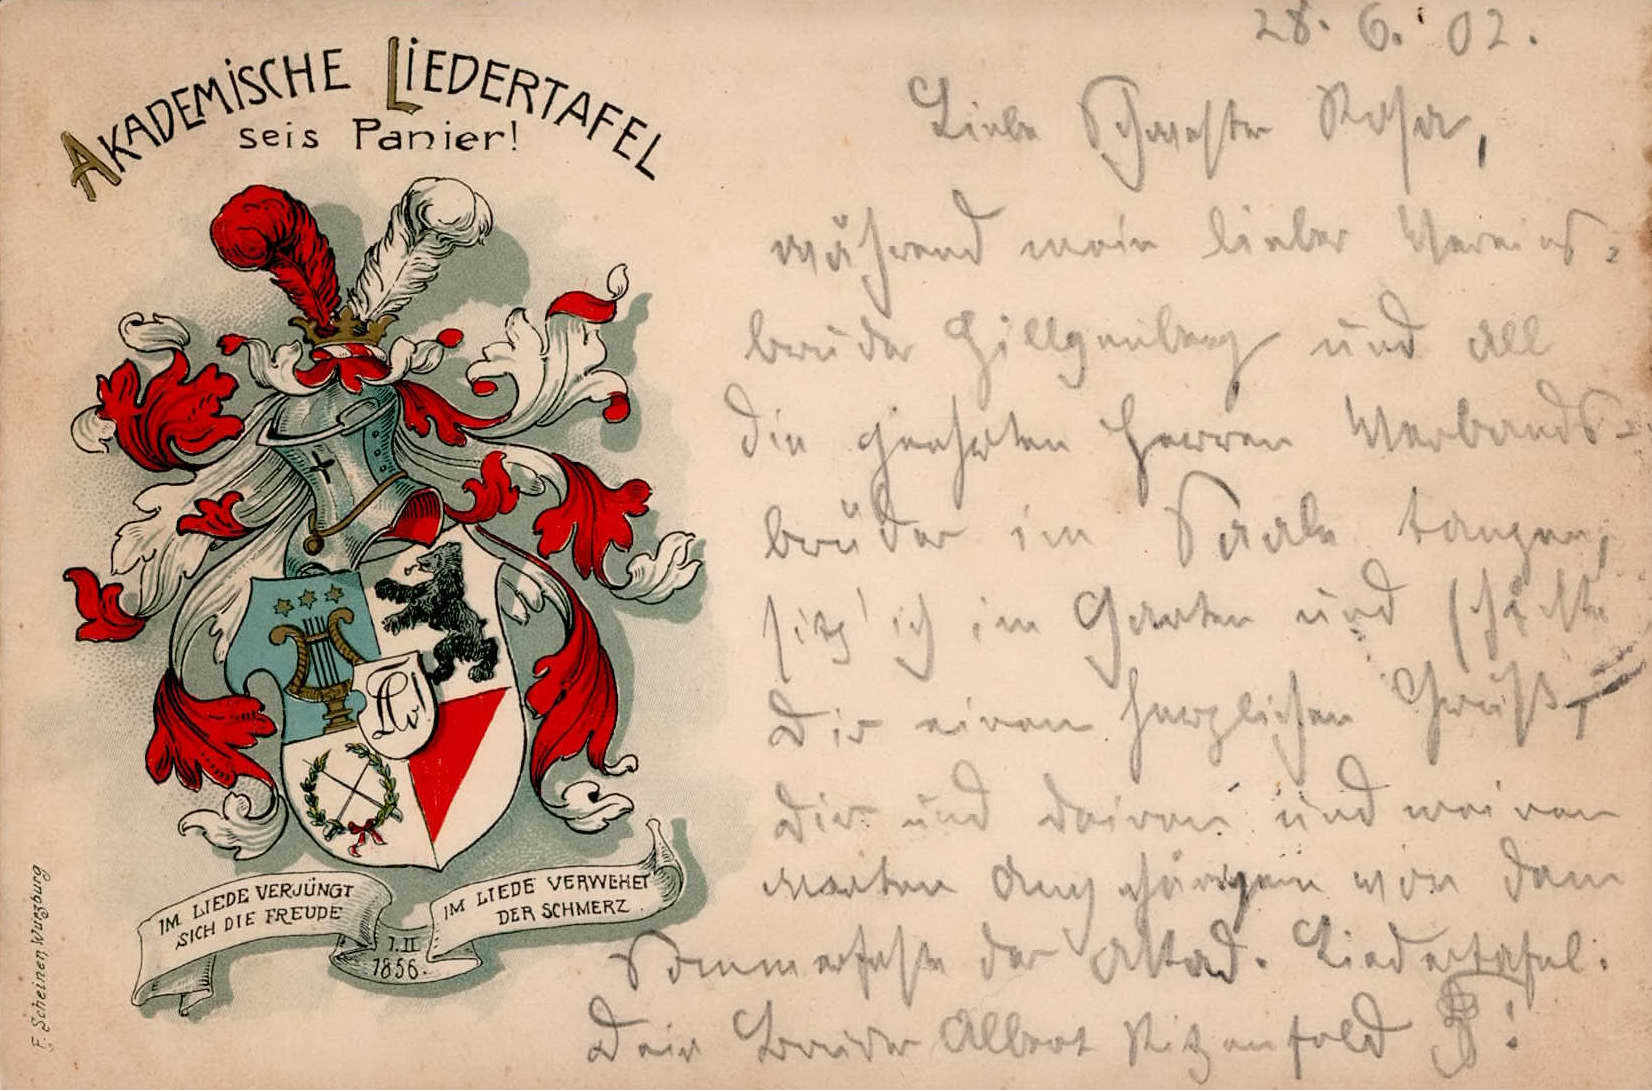 AKADEMISCHE LIEDERTAFEL
seis Panier!
IM LIEDE VERJÜNGT
SICH DIE FREUDE
IM LIEDE VERWEHET
DER SCHMERZ.
1.II
1856.
F. Scheiner, Würzburg
28. 6. 02.
Liebe Schwester Rosa,
während mein lieber Vereins-
bruder und all
die geehrten Herren Verbands-
brüder im Saale tanzen,
sitz' ich im Garten und schicke
Dir einen herzlichen Gruß,
Dir und deinen und meinen
werten Angehörigen von dem
Sommerfeste der Akad. Liedertafel.
Dein Bruder Albert Ritzenfeld